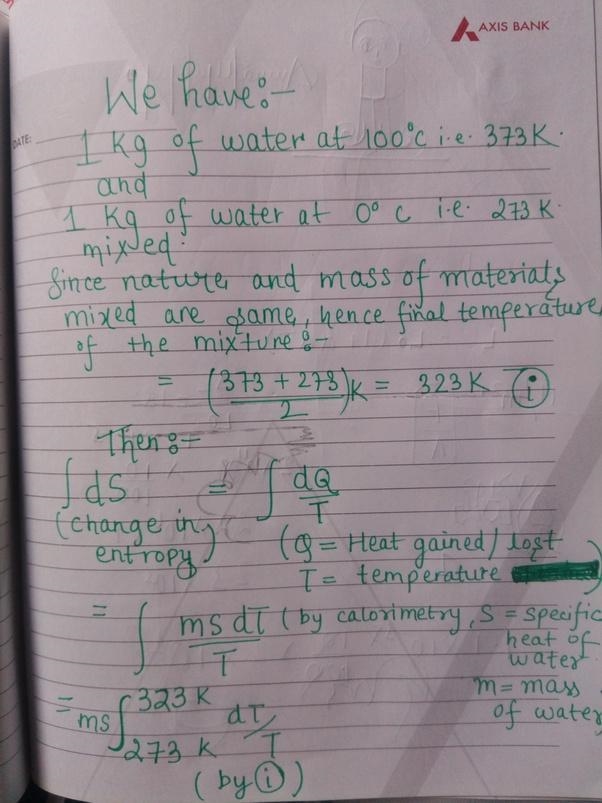 AXIS BANK
We have:-
DATE:
1 Kg of water at 100°c i.e. 373K.
and
1 Kg of water at 0° c i.e. 273 K.
mixed.
Since nature and mass of materials
mixed are same, hence final temperature
of the mixture:-
= (373 + 273 / 2)K = 323K (i)
Then:-
∫dS = ∫ dQ/T
(change in entropy) (Q = Heat gained/lost
T = temperature )
= ∫ ms dT / T (by calorimetry, S = specific
heat of
water
m = mass
of water
= ms ∫ 323 K 273 K dT/T
(by (i))